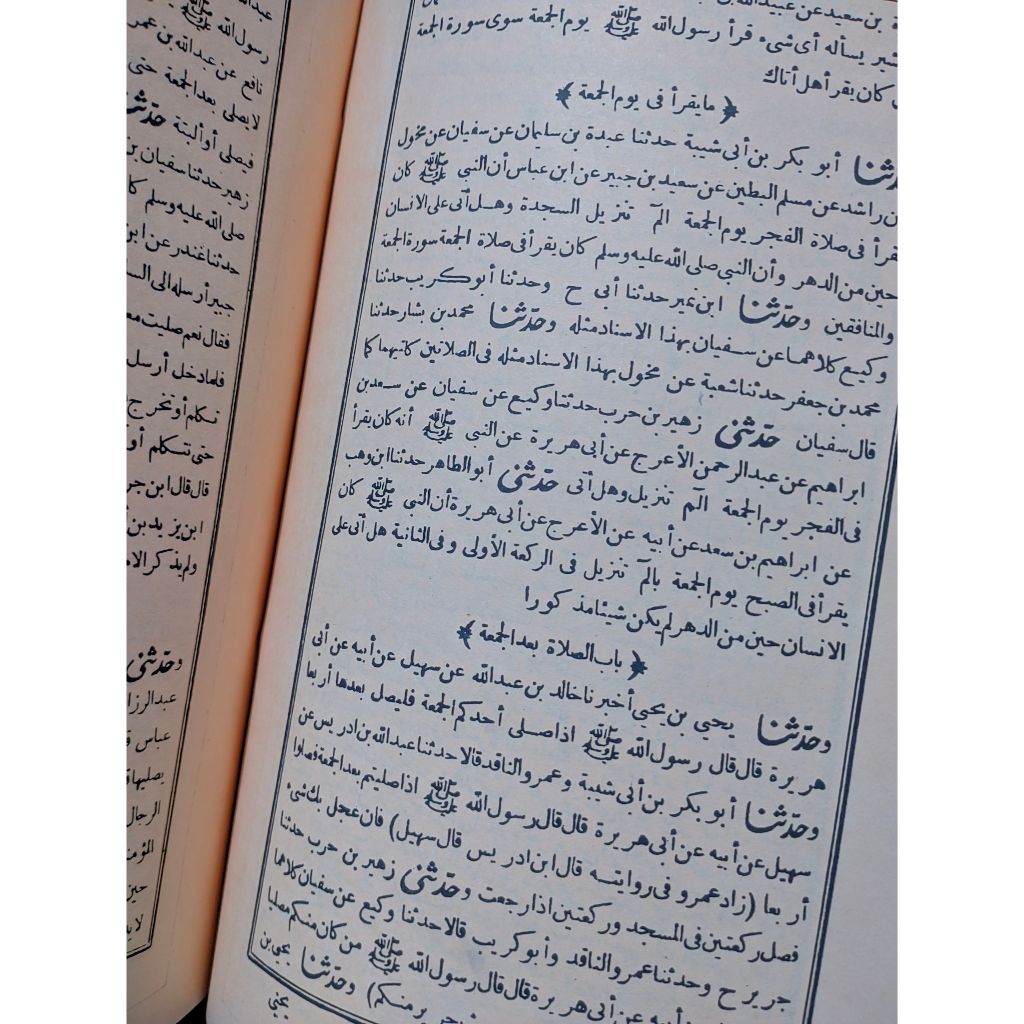 ة بن سعيد عن عبيد الله بن
يسأله أى شىء قرأ رسول الله ﷺ يوم الجمعة سوى سورة الجمعة
كان يقرأ هل أتاك
﴿ ما يقرأ فى يوم الجمعة ﴾
حدّثنا أبو بكر بن أبى شيبة حدثنا عبدة بن سليمان عن سفيان عن مخول
بن راشد عن مسلم البطين عن سعيد بن جبير عن ابن عباس أن النبى ﷺ كان
يقرأ فى صلاة الفجر يوم الجمعة الم تنزيل السجدة وهل أتى على الانسان
حين من الدهر وأن النبى صلى الله عليه وسلم كان يقرأ فى صلاة الجمعة سورة الجمعة
والمنافقين وحدّثنا ابن نمير حدثنا أبى ح وحدثنا أبو كريب حدثنا
وكيع كلاهما عن سفيان بهذا الاسناد مثله وحدّثنا محمد بن بشار حدثنا
محمد بن جعفر حدثنا شعبة عن مخول بهذا الاسناد مثله فى الصلاتين كلتيهما كما
قال سفيان حدّثنى زهير بن حرب حدثنا وكيع عن سفيان عن سعد بن
ابراهيم عن عبد الرحمن الأعرج عن أبى هريرة عن النبى ﷺ أنه كان يقرأ
فى الفجر يوم الجمعة الم تنزيل وهل أتى حدّثنى أبو الطاهر حدثنا ابن وهب
عن ابراهيم بن سعد عن أبيه عن الأعرج عن أبى هريرة أن النبى ﷺ كان
يقرأ فى الصبح يوم الجمعة بالم تنزيل فى الركعة الأولى وفى الثانية هل أتى على
الانسان حين من الدهر لم يكن شيئا مذكورا
﴿ باب الصلاة بعد الجمعة ﴾
وحدّثنا يحيى بن يحيى أخبرنا خالد بن عبد الله عن سهيل عن أبيه عن أبى
هريرة قال قال رسول الله ﷺ اذا صلى أحدكم الجمعة فليصل بعدها أربعا
وحدّثنا أبو بكر بن أبى شيبة وعمرو الناقد قالا حدثنا عبد الله بن ادريس عن
سهيل عن أبيه عن أبى هريرة قال قال رسول الله ﷺ اذا صليتم بعد الجمعة فصلوا
أربعا (زاد عمرو فى روايته قال ابن ادريس قال سهيل) فان عجل بك شىء
فصل ركعتين فى المسجد وركعتين اذا رجعت وحدّثنى زهير بن حرب حدثنا
جرير ح وحدثنا عمرو الناقد وأبو كريب قالا حدثنا وكيع عن سفيان كلاهما
عن أبى هريرة قال قال رسول الله ﷺ من كان منكم مصليا
منكم) وحدّثنا يحيى بن
يحيى
رسول الله ﷺ
نافع عن عبد الله بن عمر
لا يصلى بعد الجمعة حتى
فيصلى أو ألبتة
زهير حدثنا سفيان بن
صلى الله عليه وسلم كا
حدثنا غندر عن ابن
جبير أرسله الى السا
فقال نعم صليت مع
فلما دخل أرسل
تتكلم أو تخرج
حتى نتكلم أو
قال قال ابن جر
ابن يزيد بن
ولم يذكر الام
وحدّثنى
عبد الرزا
عباس ق
يصليها ق
الرجال
المؤمن
حين